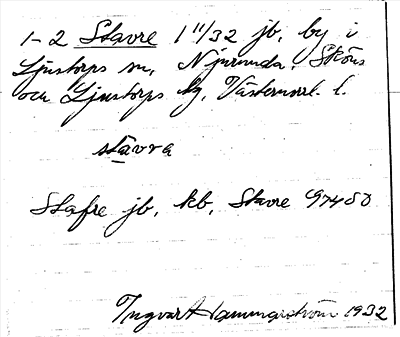 1-2 Stavre 1 11/32 jb, by i
Ljustorps sn, Njurunda, Sköns
och Ljustorps tg, Västernorrl. l.
stavra
Stafre jb, kb, Stavre G74SO
Ingvar Hammarström 1932